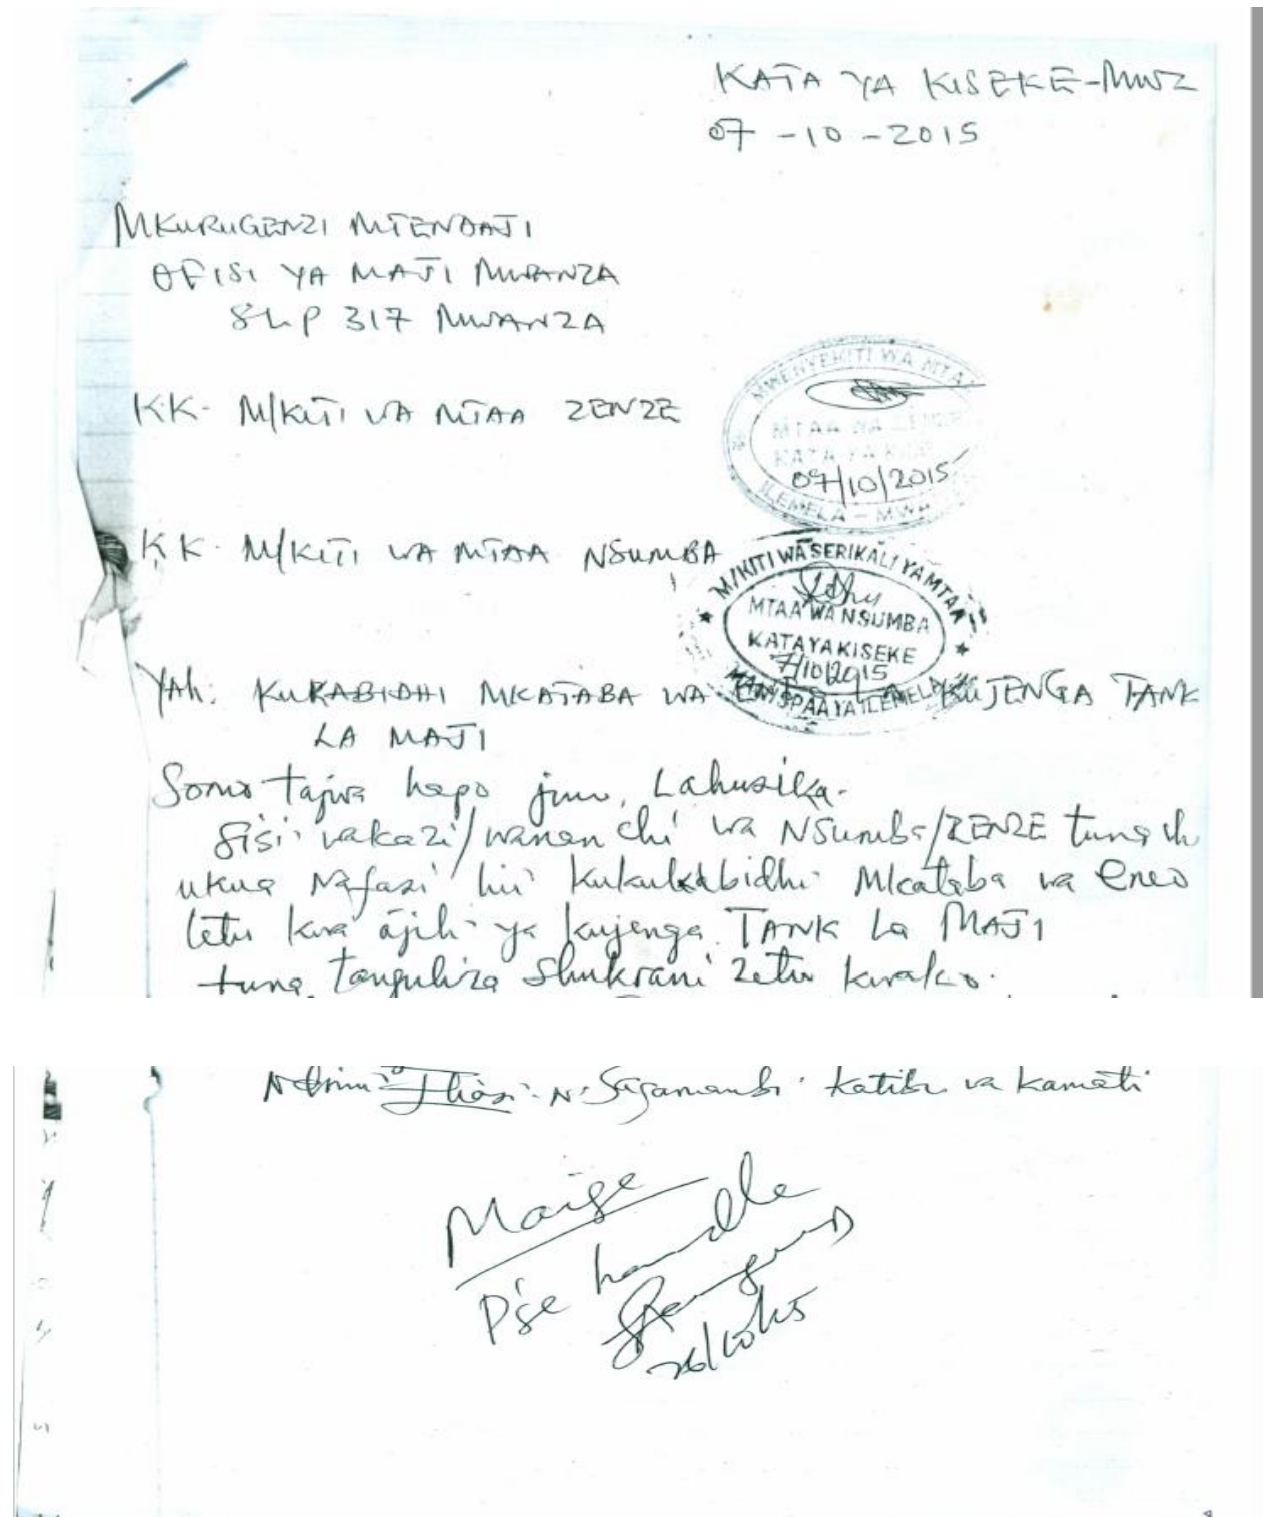 KATA YA KISEKE-MWZ
07-10-2015
MKURUGENZI MTENDAJI
OFISI YA MAJI MWANZA
SLP 317 MWANZA
KK- M/KITI WA MTAA ZENZE
MWENYEKITI WA MTAA
MTAA WA ZENZE
KATA YA
07/10/2015
ILEMELA - MWA
KK- M/KITI WA MTAA NSUMBA
M/KITI WA SERIKALI YA MTAA
MTAA WA NSUMBA
KATA YA KISEKE
7/10/2015
MANISPAA YA ILEMELA
YAh: KUKABIDHI MKATABA WA KUJENGA TANK
LA MAJI
Somo tajwa hapo juu, Lahusika.
Sisi wakazi/wananchi wa NSumba/ZENZE tunach
ukua Nafasi hii Kukukabidhi Mkataba wa Eneo
letu kwa ajili ya kujenga TANK La MAJI
tuna tanguliza Shukrani zetu kwako.
Ndimi Katibu wa Kamati
Maige
P'se handle
26/10/15